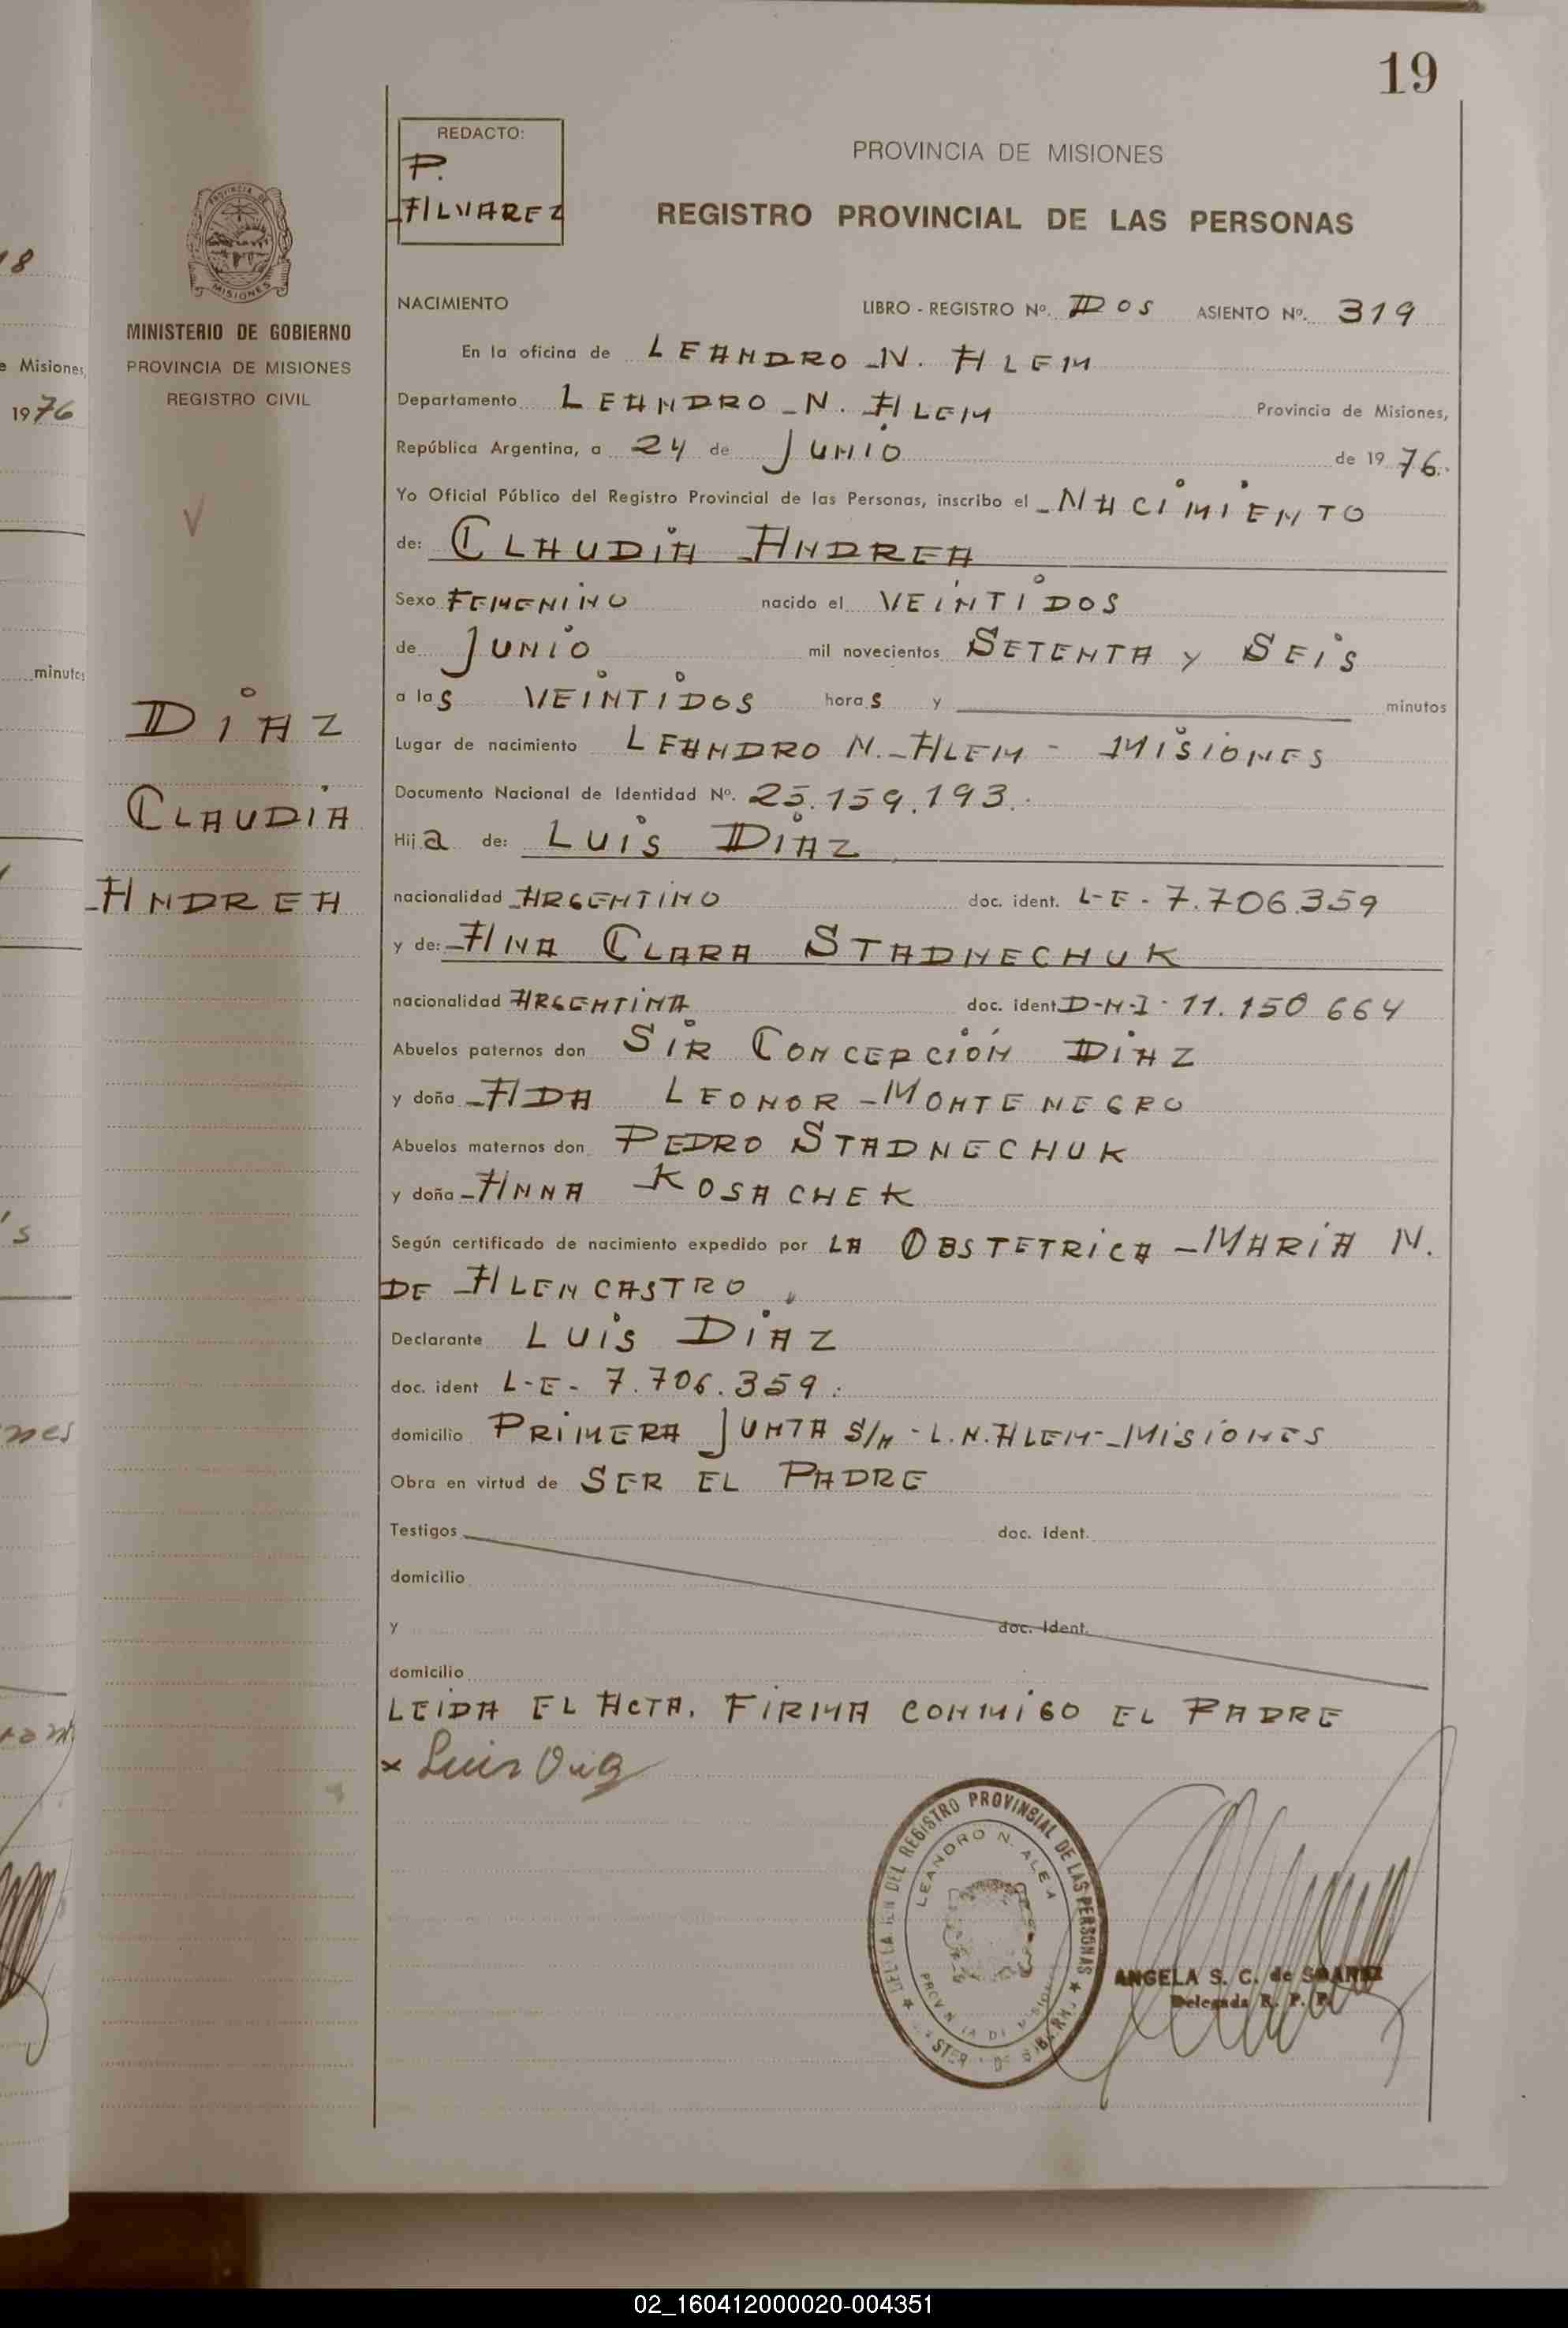 19
REDACTO:
P.
ALVAREZ
PROVINCIA DE MISIONES
REGISTRO PROVINCIAL DE LAS PERSONAS
18
e Misiones,
1976
minutos
MINISTERIO DE GOBIERNO
PROVINCIA DE MISIONES
REGISTRO CIVIL
DIAZ
CLAUDIA
ANDREA
NACIMIENTO LIBRO - REGISTRO Nº. DOS ASIENTO Nº. 319
En la oficina de LEANDRO N. ALEM
Departamento LEANDRO N. ALEM Provincia de Misiones,
República Argentina, a 24 de JUNIO de 1976.
Yo Oficial Público del Registro Provincial de las Personas, inscribo el NACIMIENTO
de: CLAUDIA ANDREA
Sexo FEMENINO nacido el VEINTIDOS
de JUNIO mil novecientos SETENTA Y SEIS
a las VEINTIDOS horas y minutos
Lugar de nacimiento LEANDRO N. ALEM - MISIONES
Documento Nacional de Identidad Nº. 25.159.193.
Hija de: LUIS DIAZ
nacionalidad ARGENTINO doc. ident. L-E- 7.706.359
y de: ANA CLARA STADNECHUK
nacionalidad ARGENTINA doc. ident. D-N-I- 11.150 664
Abuelos paternos don SIR CONCEPCIÓN DIAZ
y doña AIDA LEONOR MONTENEGRO
Abuelos maternos don PEDRO STADNECHUK
y doña ANNA KOSACHEK
Según certificado de nacimiento expedido por LA OBSTETRICA MARIA N.
DE ALENCASTRO
Declarante LUIS DIAZ
doc. ident L-E- 7.706.359.
domicilio PRIMERA JUNTA S/N - L.N. ALEM - MISIONES
Obra en virtud de SER EL PADRE
Testigos doc. ident.
domicilio
y doc. ident.
domicilio
LEIDA EL ACTA. FIRMA CONMIGO EL PADRE
x Luis Diaz
DEL REGISTRO PROVINCIAL DE LAS PERSONAS
LEANDRO N. ALEM
ANGELA S. C. de SUAREZ
Delegada R. P. P.
02_160412000020-004351